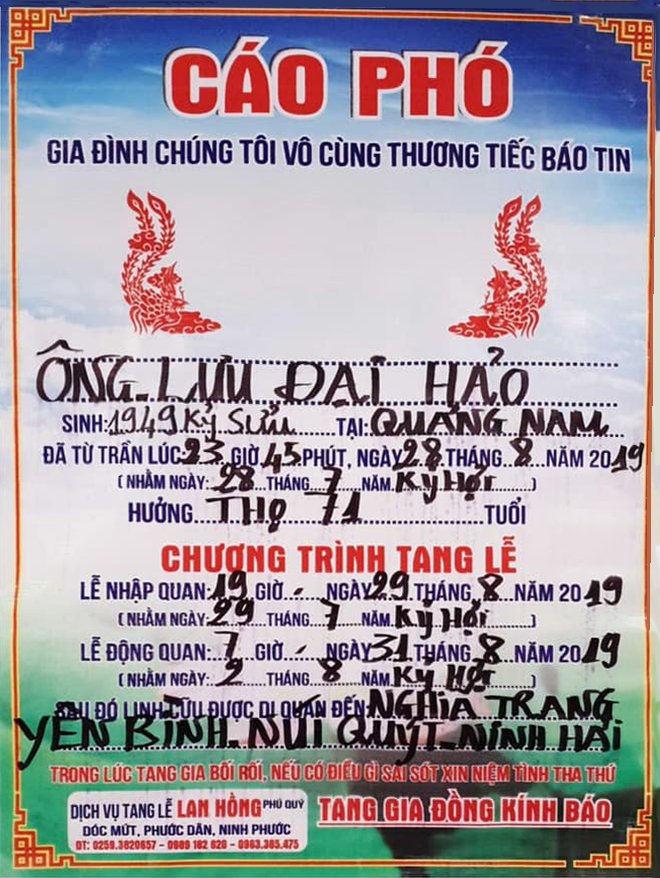 CÁO PHÓ
GIA ĐÌNH CHÚNG TÔI VÔ CÙNG THƯƠNG TIẾC BÁO TIN
ÔNG. LƯU ĐẠI HẢO
SINH: 1949 KỶ SỬU TẠI: QUẢNG NAM
ĐÃ TỪ TRẦN LÚC 23 GIỜ 45 PHÚT, NGÀY 28 THÁNG 8 NĂM 2019
( NHẰM NGÀY: 28 THÁNG 7 NĂM KỶ HỢI )
HƯỞNG THỌ 71 TUỔI
CHƯƠNG TRÌNH TANG LỄ
LỄ NHẬP QUAN: 19 GIỜ - NGÀY 29 THÁNG 8 NĂM 2019
( NHẰM NGÀY: 29 THÁNG 7 NĂM KỶ HỢI )
LỄ ĐỘNG QUAN: 7 GIỜ - NGÀY 31 THÁNG 8 NĂM 2019
( NHẰM NGÀY: 2 THÁNG 8 NĂM KỶ HỢI )
SAU ĐÓ LINH CỮU ĐƯỢC DI QUAN ĐẾN: NGHĨA TRANG
YÊN BÌNH - NÚI QUÝT - NINH HẢI
TRONG LÚC TANG GIA BỐI RỐI, NẾU CÓ ĐIỀU GÌ SAI SÓT XIN NIỆM TÌNH THA THỨ
DỊCH VỤ TANG LỄ LAN HỒNG PHÚ QUÝ
DỐC MÚT, PHƯỚC DÂN, NINH PHƯỚC
ĐT: 0259.3820657 - 0989 182 828 - 0963.385.475
TANG GIA ĐỒNG KÍNH BÁO